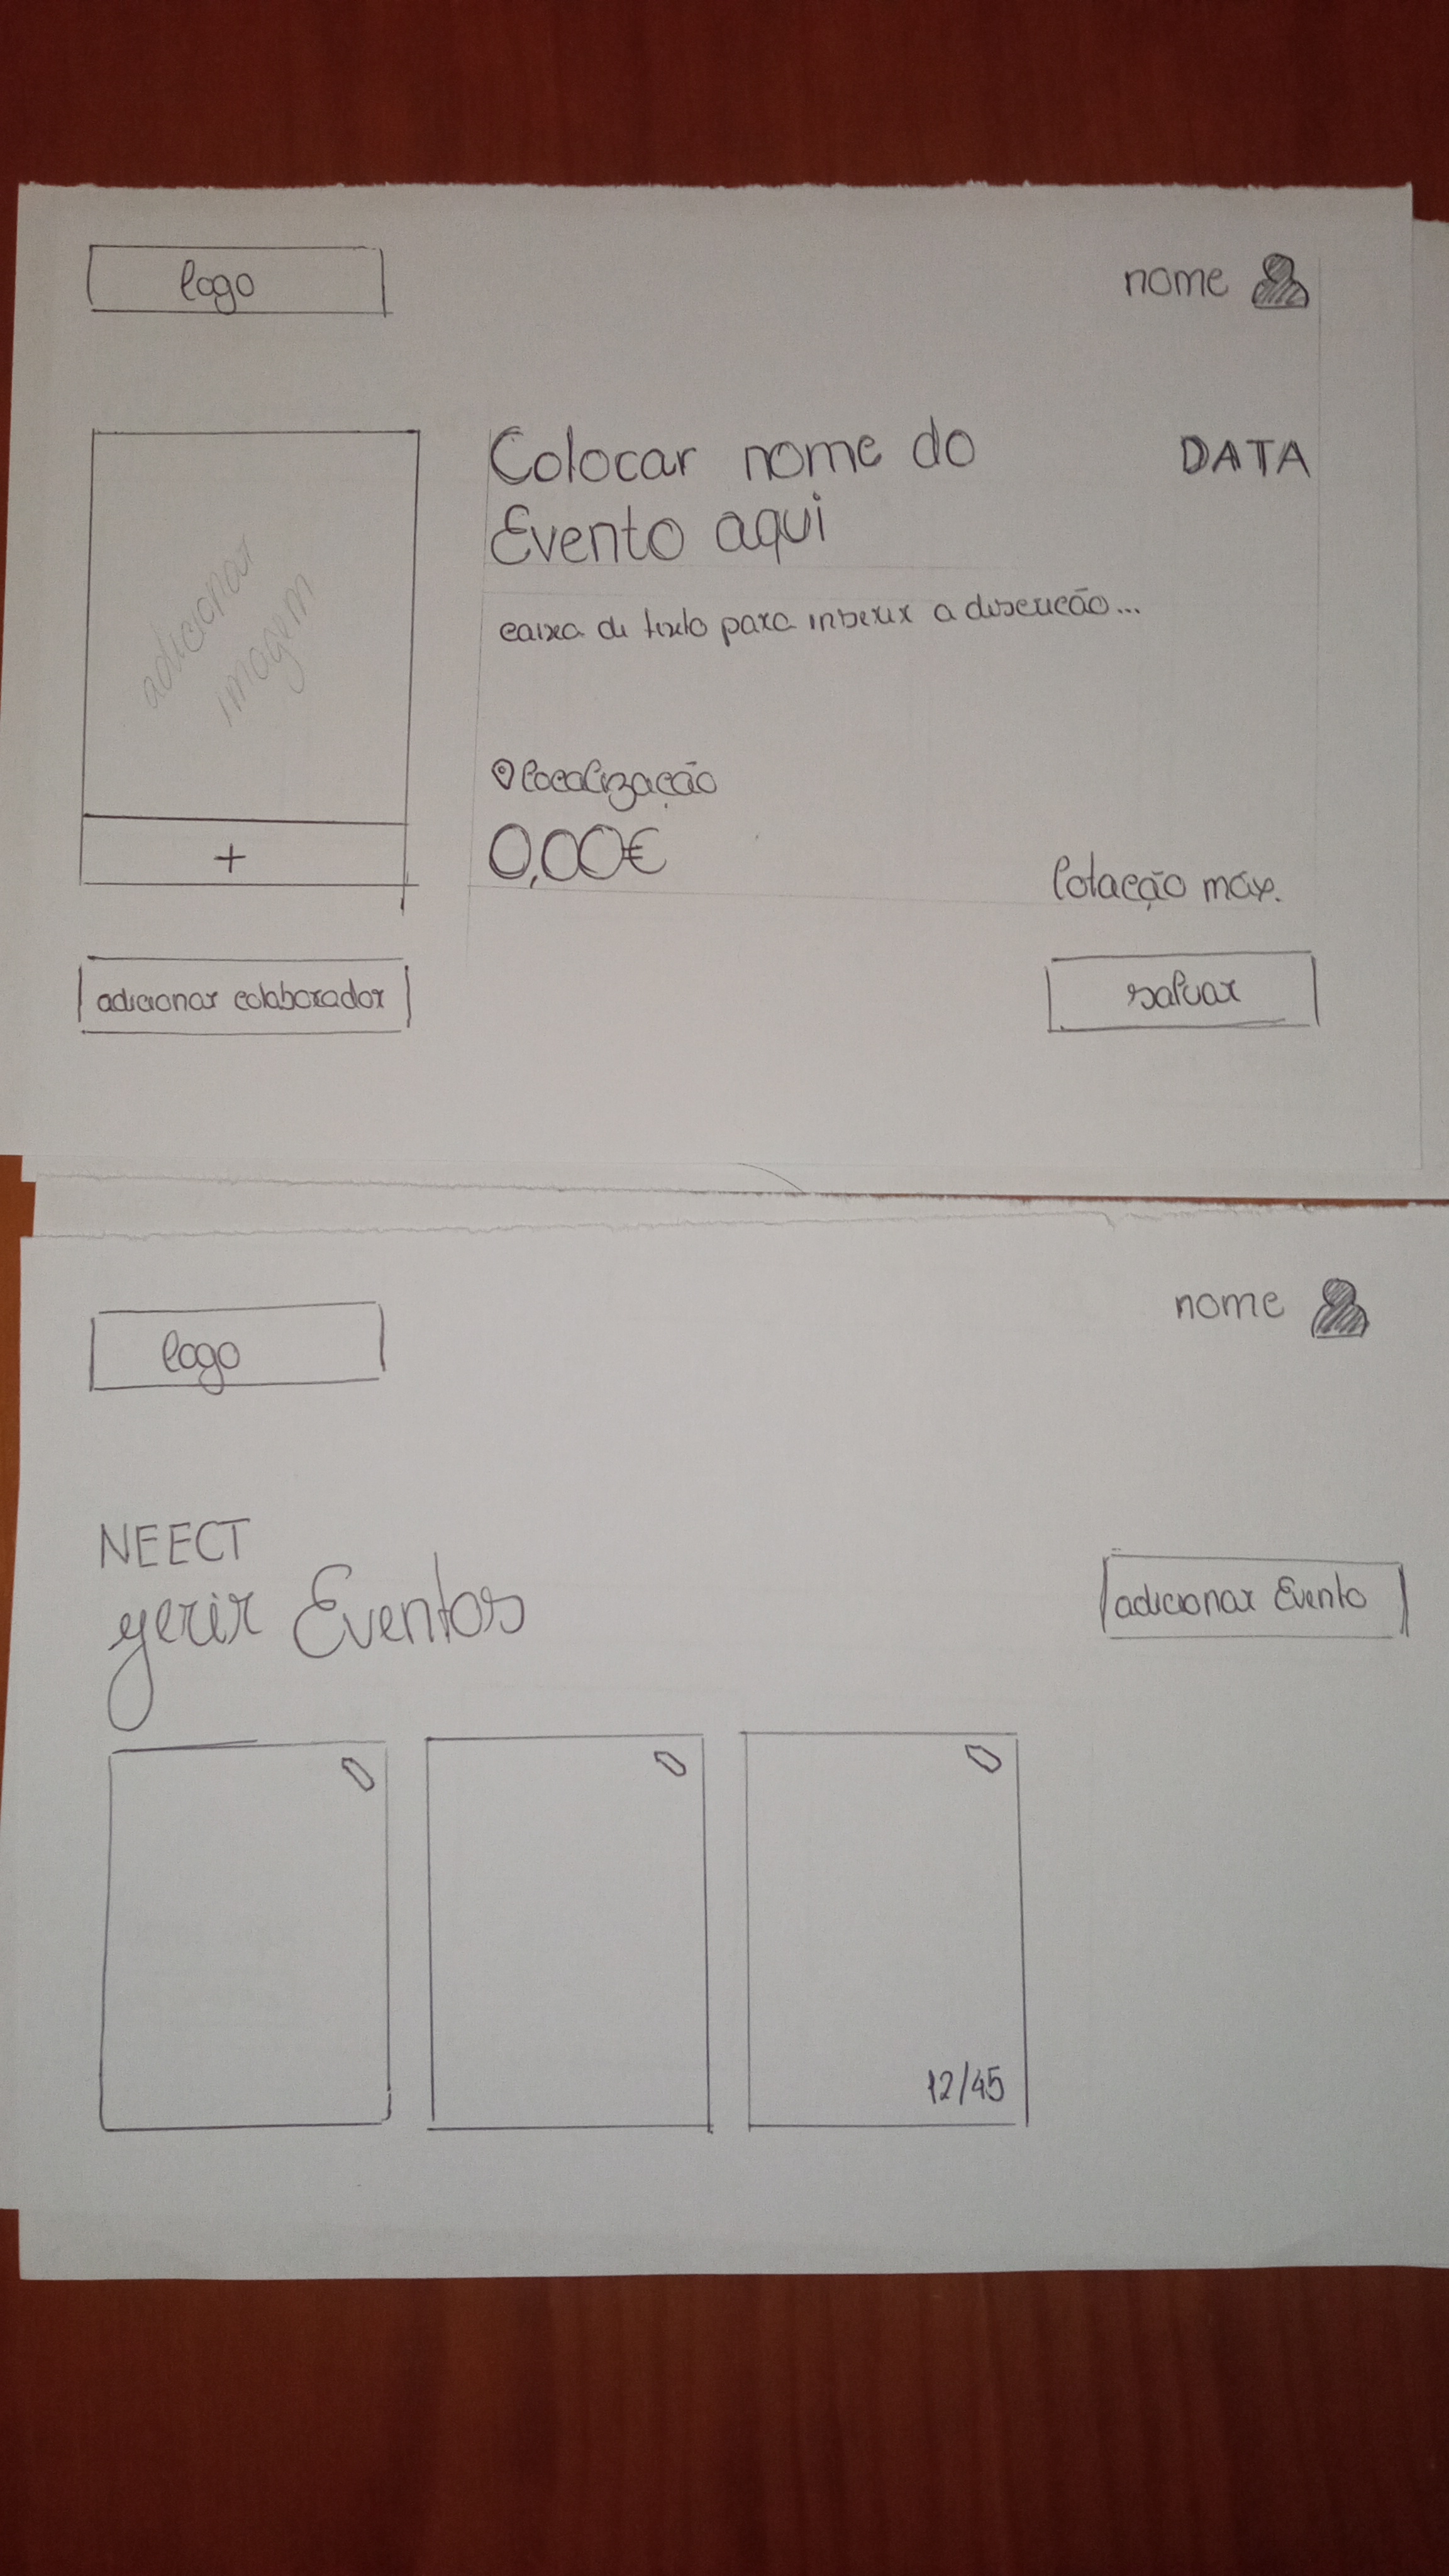 logo
nome
Colocar nome do
Evento aqui
DATA
adicionar
imagem
caixa de texto para inserir a descricão...
localização
0,00€
+
lotação máx.
adicionar colaborador
salvar
logo
nome
NEECT
gerir Eventos
adicionar Evento
12/45